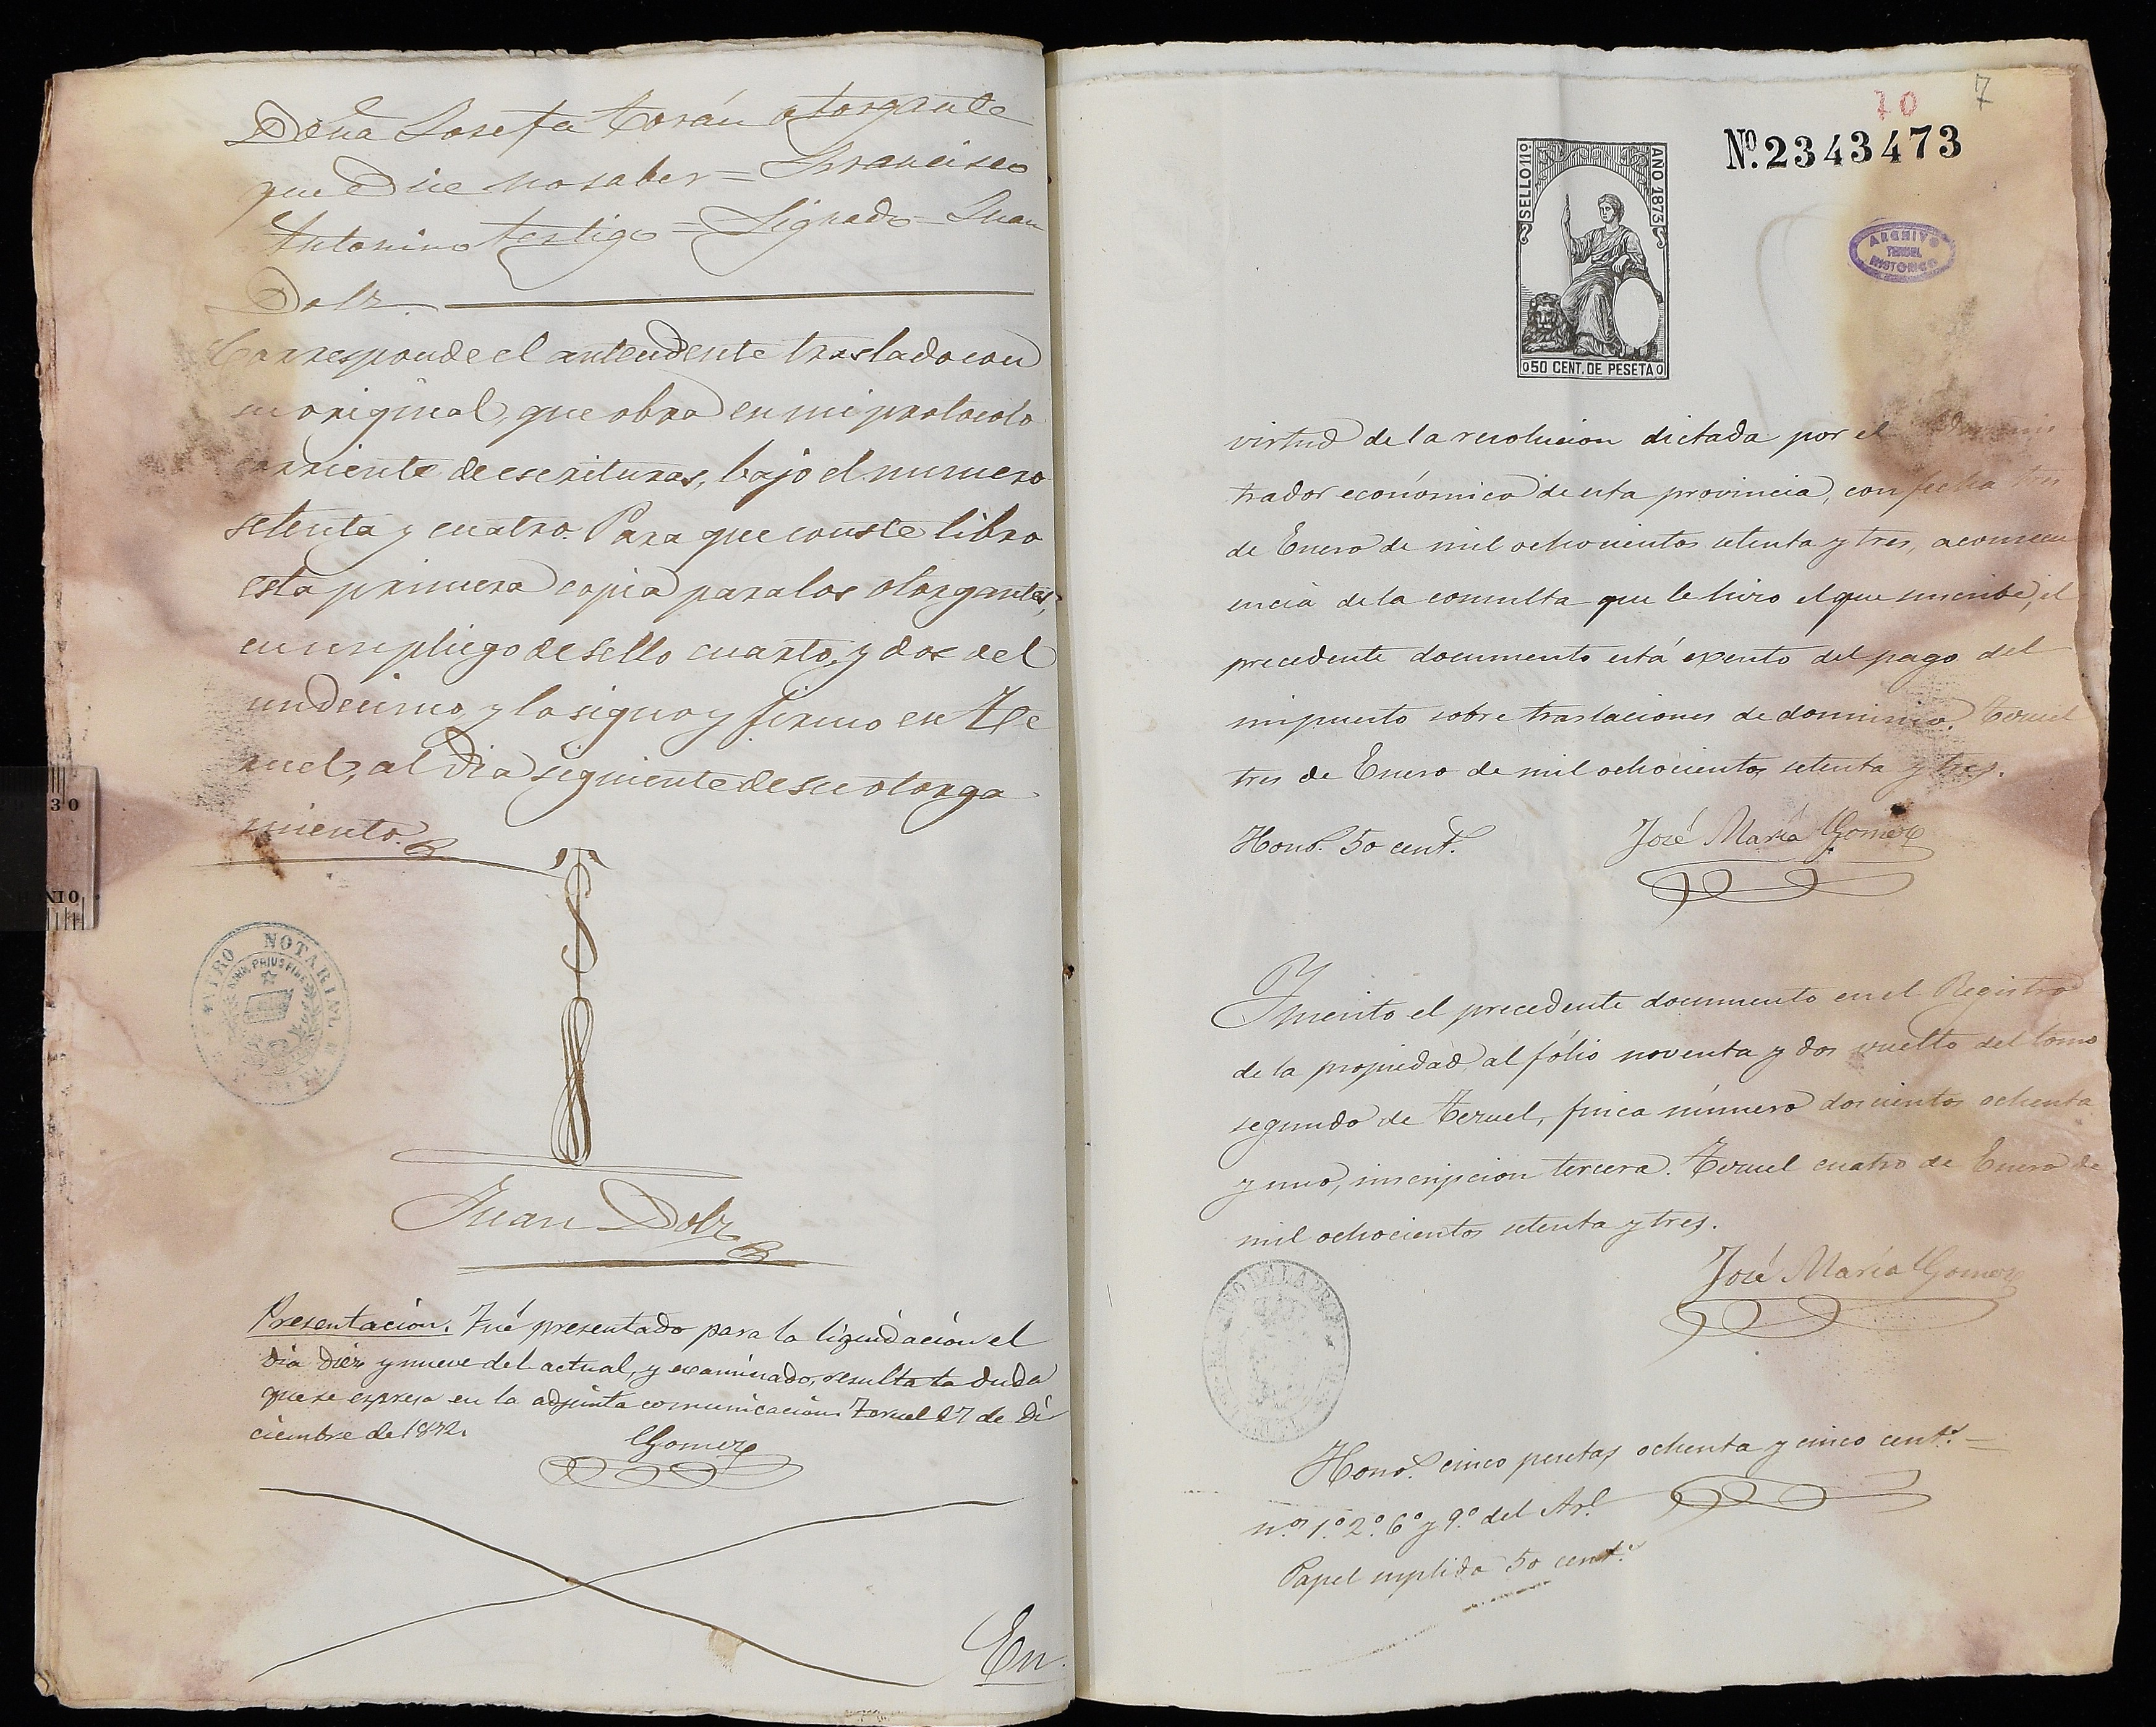 Doña Josefa Torán otorgante
que dice no saber = Francisco
Antonino testigo = Signado = Juan
Dolz.
Corresponde el antecedente traslado con
su original, que obra en mi protocolo
corriente de escrituras, bajo el numero
setenta y cuatro. Para que conste libro
esta primera copia para los otorgantes,
en un pliego de sello cuarto, y dos del
undecimo, y lo signo y firmo en Te
ruel, al dia siguiente de su otorga
miento.
NOTARIAL
NIHIL PRIUS FIDE
Juan Dolz
Presentacion. Fué presentado para la liquidacion el
dia diez y nueve del actual, y examinado, resulta la duda
que se espresa en la adjunta comunicacion. Teruel 27 de Di
ciembre de 1872.
Gomez
En
10
7
Nº. 2343473
SELLO 11º
AÑO 1873
50 CENT. DE PESETA
ARCHIVO
TERUEL
HISTORICO
virtud de la resolucion dictada por el Adminis
trador económico de esta provincia, con fecha tres
de Enero de mil ochocientos setenta y tres, a consecu
encia de la consulta que le hizo el que suscribe, el
precedente documento está exento del pago del
impuesto sobre traslaciones de dominio. Teruel
tres de Enero de mil ochocientos setenta y tres.
Hons. 50 cent.s
José María Gomez
Ynscrito el precedente documento en el Registro
de la propiedad, al fólio noventa y dos vuelto del tomo
segundo de Teruel, finca número doscientos ochenta
y uno, inscripcion tercera. Teruel cuatro de Enero de
mil ochocientos setenta y tres.
José María Gomez
Hons. cinco pesetas ochenta y cinco cent.s =
n.os 1.º 2.º 6.º y 9.º del Arl.
Papel suplido 50 cent.s